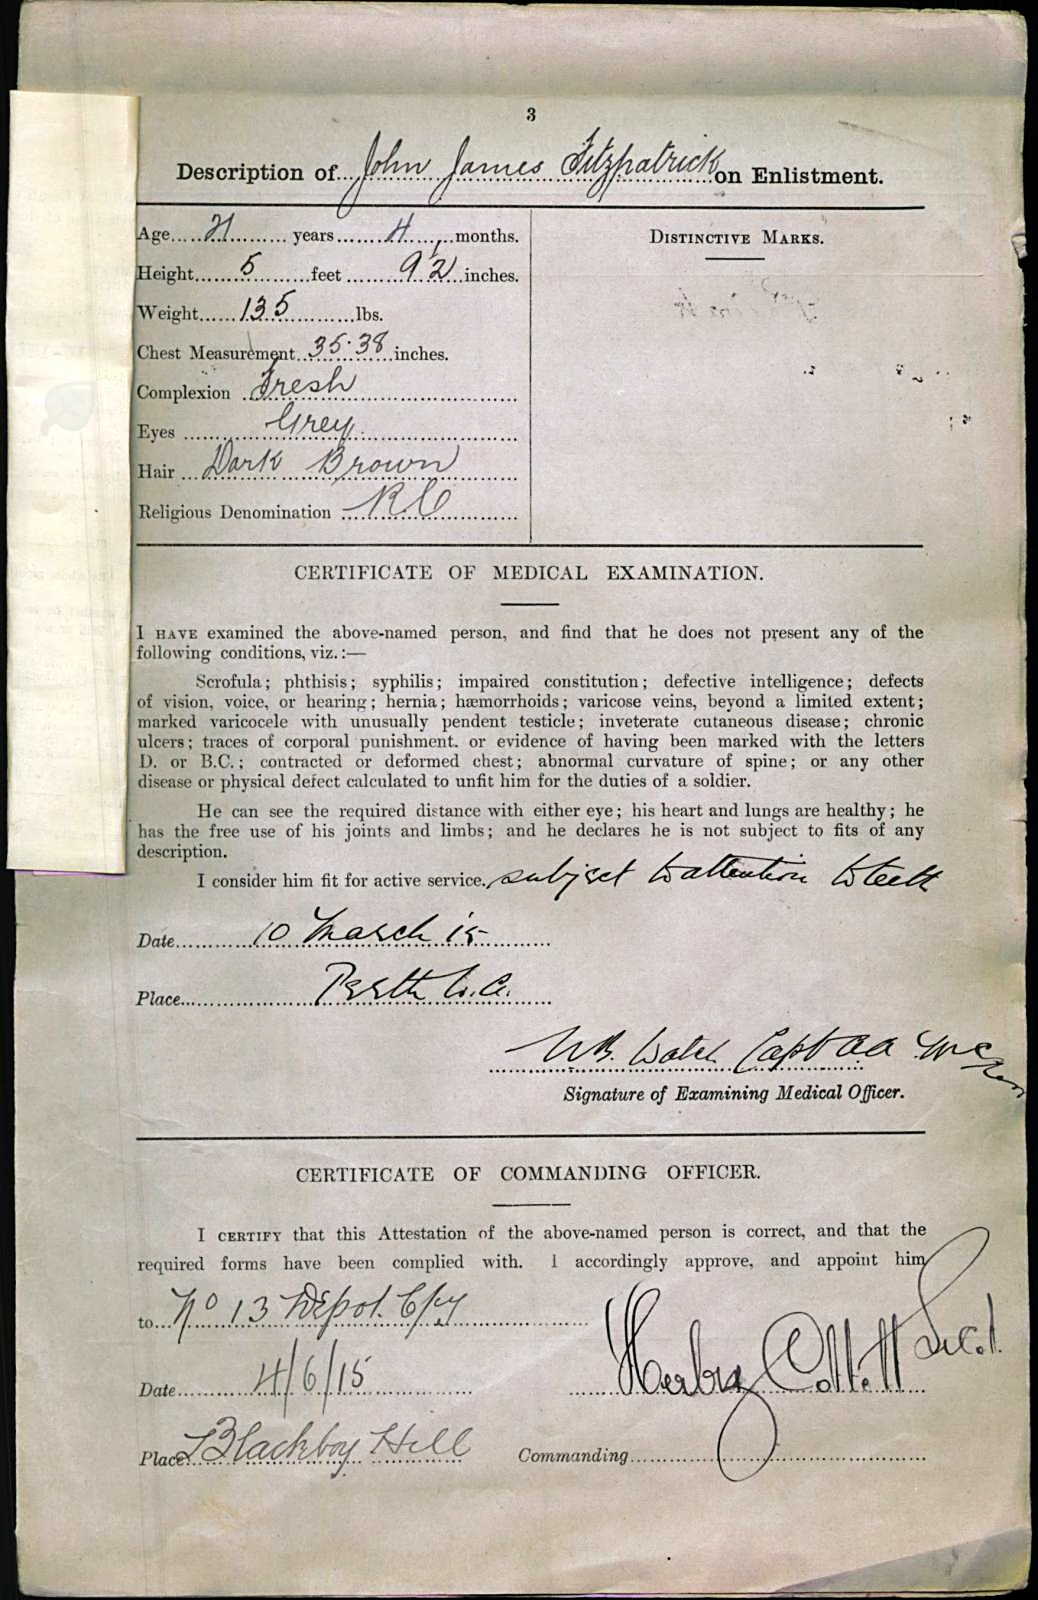 3
Description of John James Fitzpatrick on Enlistment.
Age 21 years 4 months.
Height 5 feet 9 1/2 inches.
Weight 135 lbs.
Chest Measurement 35-38 inches.
Complexion Fresh
Eyes Grey
Hair Dark Brown
Religious Denomination R.C
DISTINCTIVE MARKS.
CERTIFICATE OF MEDICAL EXAMINATION.
I HAVE examined the above-named person, and find that he does not present any of the
following conditions, viz.:—
Scrofula; phthisis; syphilis; impaired constitution; defective intelligence; defects
of vision, voice, or hearing; hernia; hæmorrhoids; varicose veins, beyond a limited extent;
marked varicocele with unusually pendent testicle; inveterate cutaneous disease; chronic
ulcers; traces of corporal punishment. or evidence of having been marked with the letters
D. or B.C.; contracted or deformed chest; abnormal curvature of spine; or any other
disease or physical defect calculated to unfit him for the duties of a soldier.
He can see the required distance with either eye; his heart and lungs are healthy; he
has the free use of his joints and limbs; and he declares he is not subject to fits of any
description.
I consider him fit for active service. subject to attention to teeth
Date 10 March 15
Place Perth W.A.
Capt AA
Signature of Examining Medical Officer.
CERTIFICATE OF COMMANDING OFFICER.
I CERTIFY that this Attestation of the above-named person is correct, and that the
required forms have been complied with. I accordingly approve, and appoint him
to No 13 Depot Cpy
Date 4/6/15
Place Blackboy Hill
Commanding